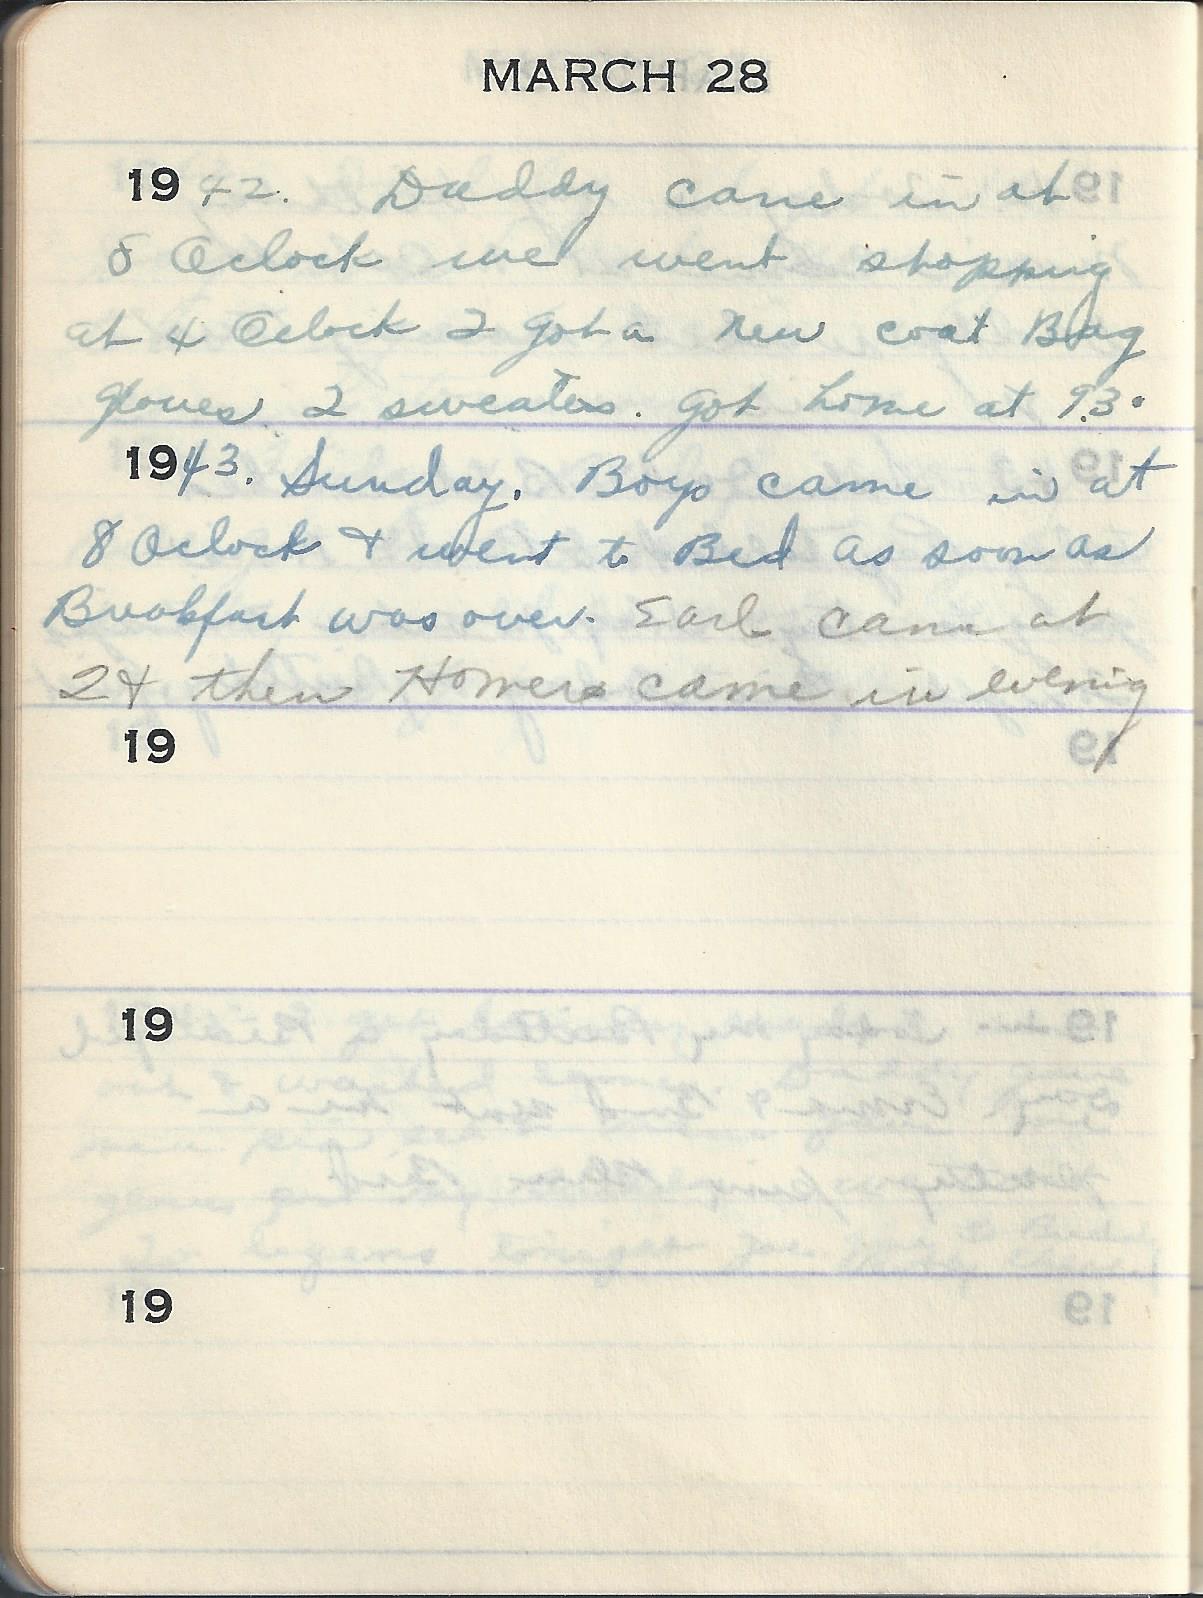 MARCH 28
1942. Daddy came in at
8 Oclock we went shopping
at 4 Oclock I got a new coat Bag
gloves 2 sweaters. Got home at 930
1943. Sunday. Boys came in at
8 Oclock & went to Bed as soon as
Breakfast was over. Earl came at
2 & then Homers came in evening
19
19
19